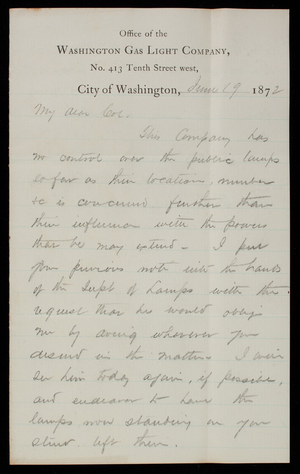 Office of the
WASHINGTON GAS LIGHT COMPANY,
No. 413 Tenth Street west,
City of Washington, June 19 1872
My dear Col.
This Company has
no control over the public lamps
so far as their location, number
&c is concerned further than
their influence with the powers
that be may extend - I put
your previous note into the hands
of the Supt of Lamps with the
request that he would oblige
me by doing whatever you
desired in the matter. I will
see him today again, if possible,
and endeavor to have the
lamps now standing on your
street left there.